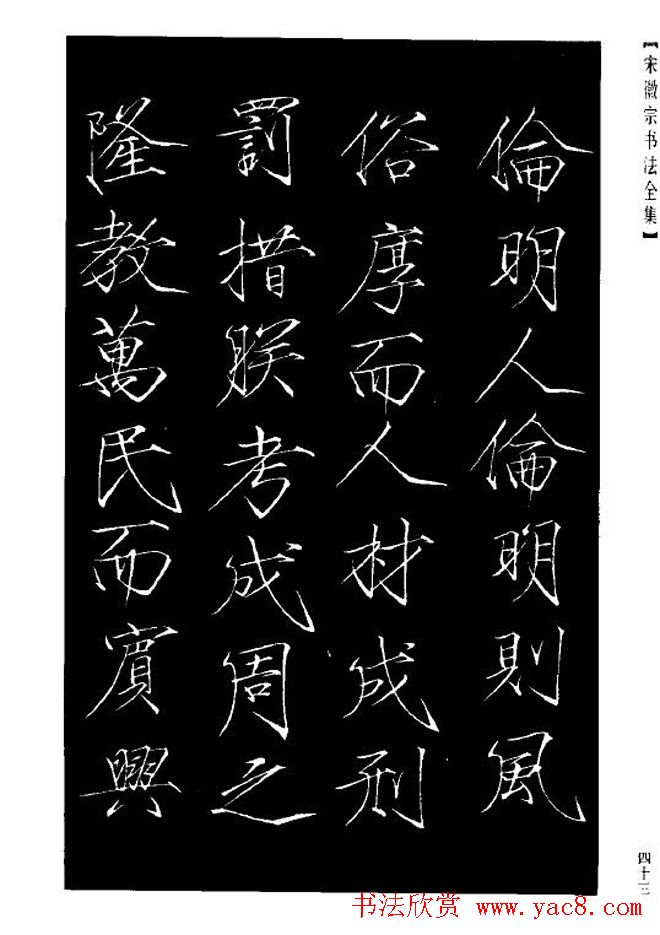 【宋徽宗书法全集】
倫明人倫明則風
俗厚而人材成刑
罰措朕考成周之
隆教萬民而賓興
四十三
书法欣赏 www.yac8.com